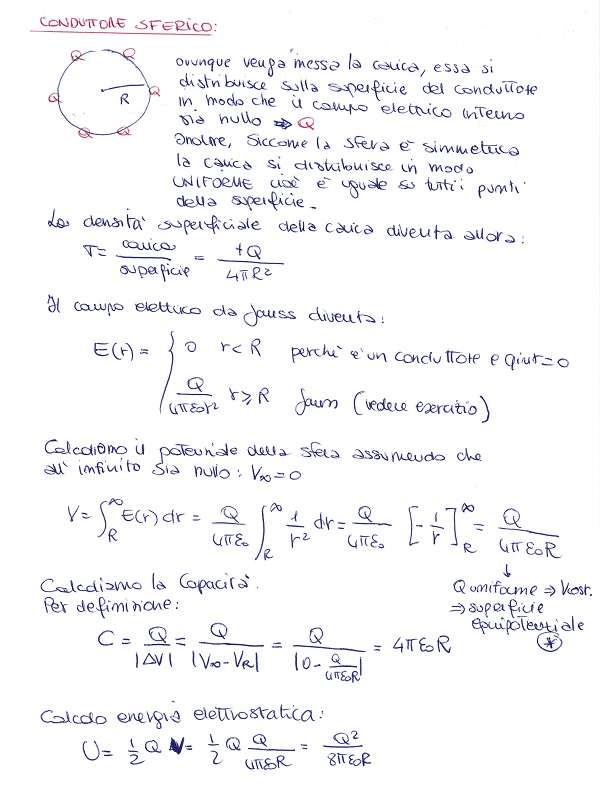 CONDUTTORE SFERICO:
Q Q
Q R Q
Q Q
ovunque venga messa la carica, essa si
distribuisce sulla superficie del conduttore
in modo che il campo elettrico interno
sia nullo ⇒ Q
Inoltre, siccome la sfera è simmetrica
la carica si distribuisce in modo
UNIFORME cioè è uguale su tutti i punti
della superficie.
La densità superficiale della carica diventa allora:
σ = carica/superficie = +Q/4πR²
Il campo elettrico da Gauss diventa:
E(r) = { 0 r < R perchè è un conduttore e Qint = 0
Q/4πε0r² r ⩾ R Gauss (vedere esercizio)
Calcoliamo il potenziale della sfera assumendo che
all'infinito sia nullo: V∞ = 0
V = ∫R∞ E(r) dr = Q/4πε0 ∫R∞ 1/r² dr = Q/4πε0 [-1/r]R∞ = Q/4πε0R
↓
Q uniforme ⇒ Vcost.
⇒ superficie
equipotenziale
*
Calcoliamo la Capacità.
Per definizione:
C = Q/|ΔV| = Q/|V∞ - VR| = Q/|0 - Q/4πε0R| = 4πε0R
Calcolo energia elettrostatica:
U = 1/2 Q V = 1/2 Q Q/4πε0R = Q²/8πε0R